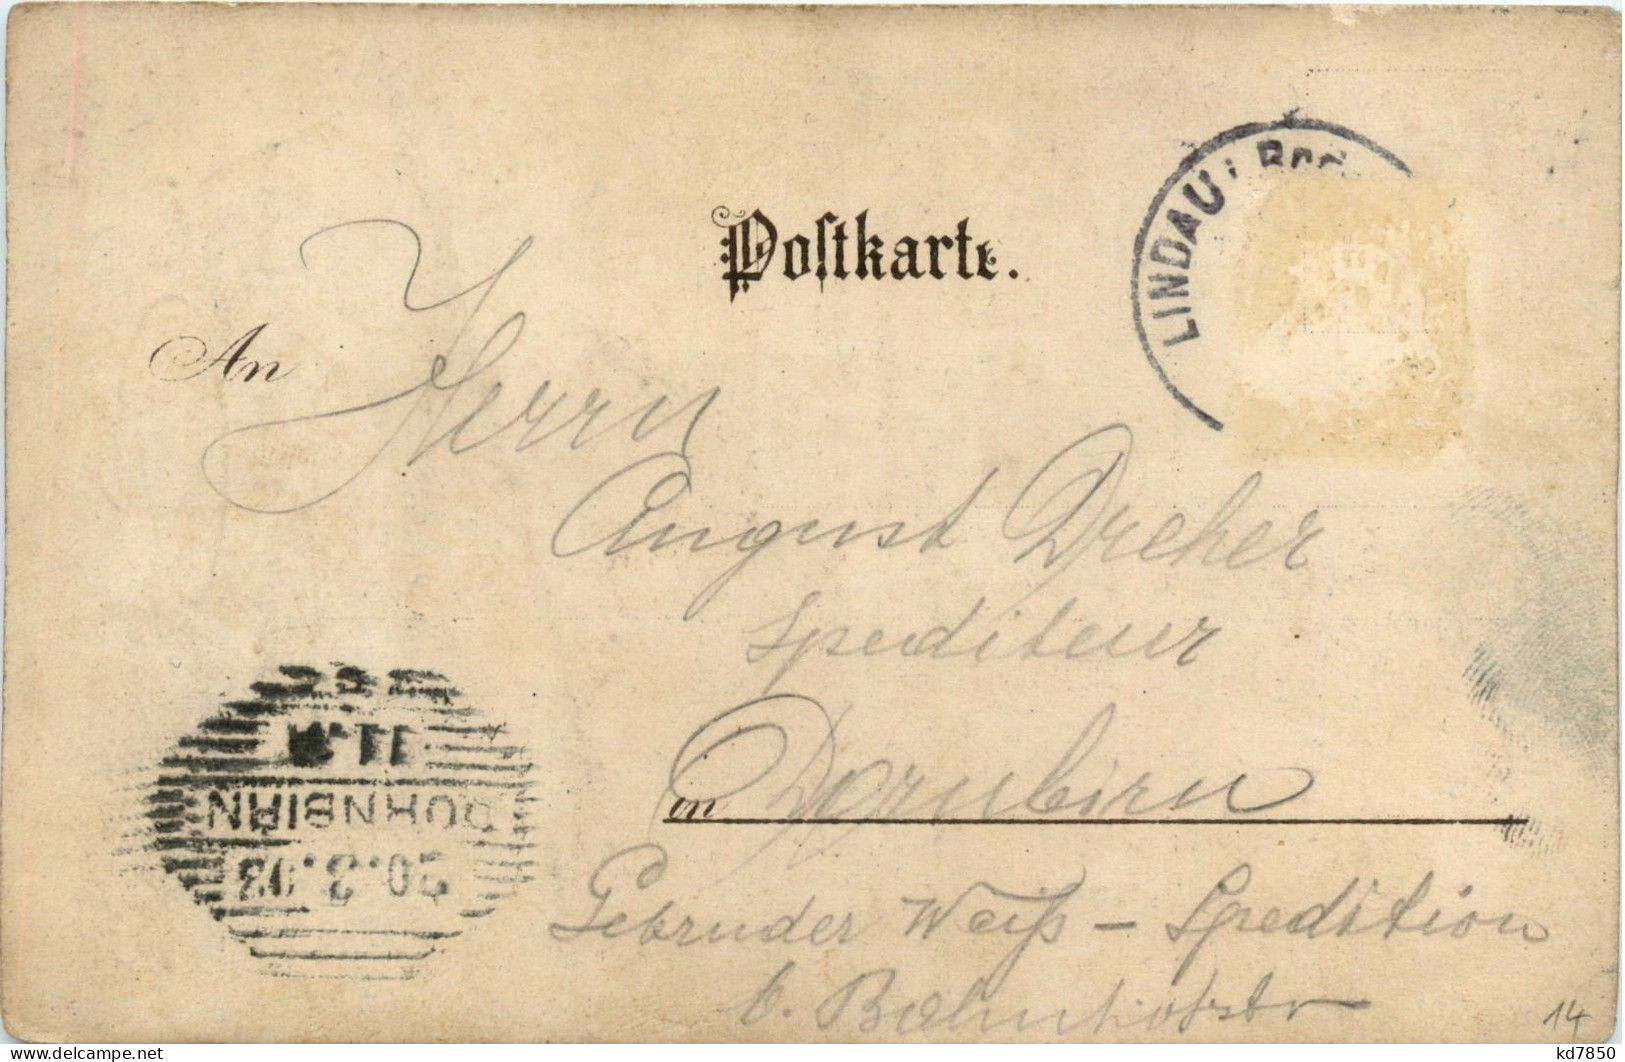 Postkarte.
LINDAU i. Bod
An Herrn
August Dreher
Spediteur
in Dornbirn
Gebrüder Weiß – Spedition
b. Bahnhofstr
11.
DORNBIRN
20.3.03
14
www.delcampe.net
kd7850